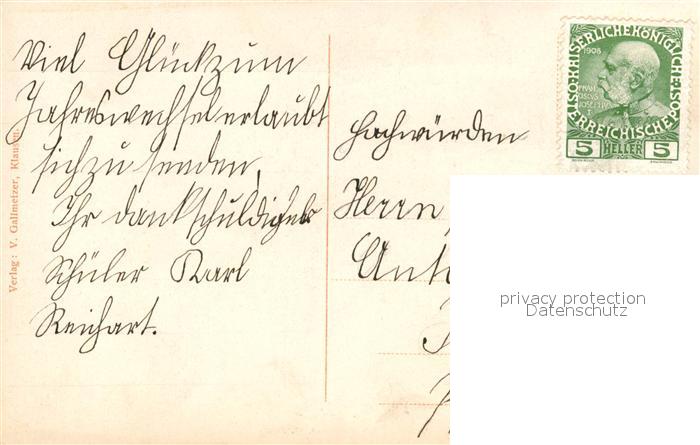 Viel Glück zum
Jahreswechsel erlaubt
sich zu senden,
Ihr dankschuldigster
Schüler Karl
Reichart.
Hochwürden
Herrn
Ant
Verlag: V. Gallmetzer, Klausen.
KAISERLICHEKÖNIGLICHE
ÖSTERREICHISCHEPOST
1908
FRAN
CISCVS
JOSEPH I
5 HELLER 5
privacy protection
Datenschutz